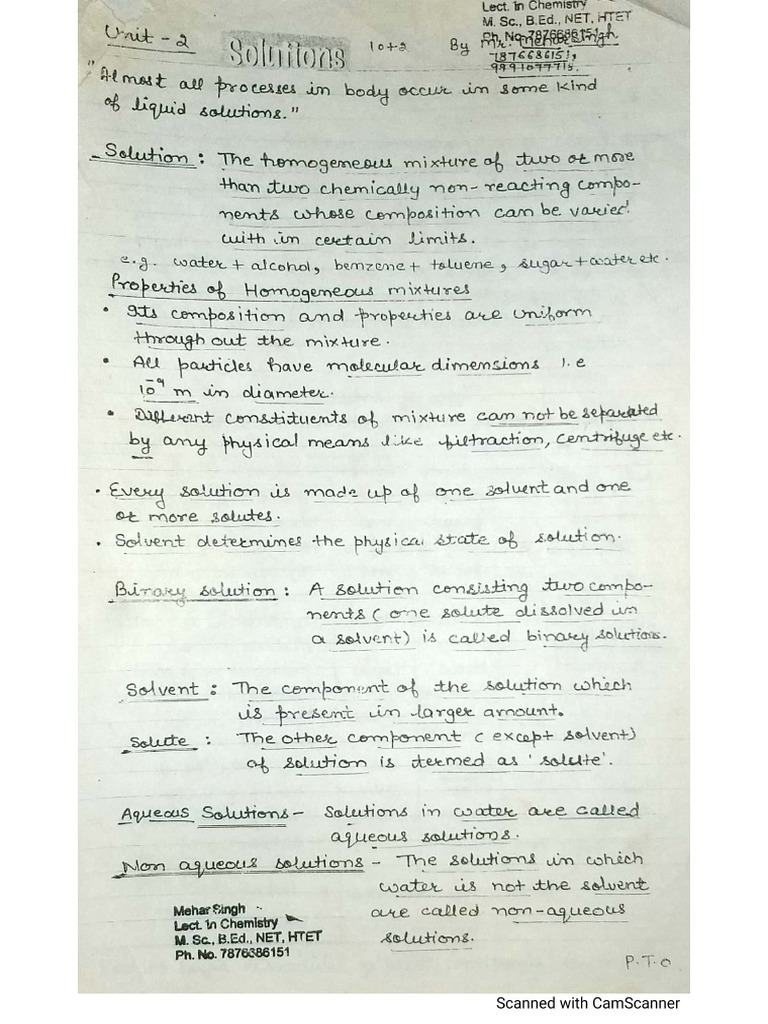 Lect. in Chemistry
M. Sc., B.Ed., NET, HTET
Unit - 2 Solutions 10+2 By Mr. Mehar Singh
Ph. No. 7876686151
7876686151,
"Almost all processes in body occur in some kind
of liquid solutions."
Solution : The homogeneous mixture of two or more
than two chemically non-reacting compo-
nents whose composition can be varied
with in certain limits.
e.g. water + alcohol, benzene + toluene, sugar + water etc.
Properties of Homogeneous mixtures
• Its composition and properties are uniform
through out the mixture.
• All particles have molecular dimensions i.e
10⁻⁹ m in diameter.
• Different constituents of mixture can not be separated
by any physical means like filtraction, centrifuge etc.
• Every solution is made up of one solvent and one
or more solutes.
• Solvent determines the physical state of solution.
Binary solution : A solution consisting two compo-
nents ( one solute dissolved in
a solvent) is called binary solution.
Solvent : The component of the solution which
is present in larger amount.
Solute : The other component ( except solvent)
of solution is termed as 'solute'.
Aqueous Solutions - Solutions in water are called
aqueous solutions.
Non aqueous solutions - The solutions in which
water is not the solvent
are called non-aqueous
solutions.
Mehar Singh
Lect. in Chemistry
M. Sc., B.Ed., NET, HTET
Ph. No. 7876686151
P.T.O
Scanned with CamScanner